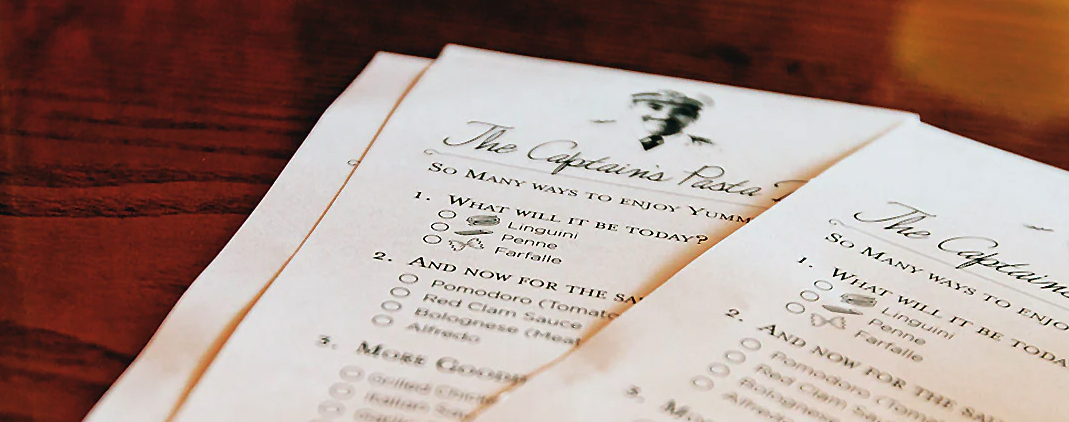 The Captain's Pasta
So Many ways to enjoy Yumm
1. What will it be today?
Linguini
Penne
Farfalle
2. And now for the sau
Pomodoro (Tomato
Red Clam Sauce
Bolognese (Meat
Alfredo
3. More Good
Grilled Chicke
Italian Sau
The Captain's
So Many ways to enjo
1. What will it be toda
Linguini
Penne
Farfalle
2. And now for the
Pomodoro (Toma
Red Clam Sau
Bolognese
Alfred
3. Mo